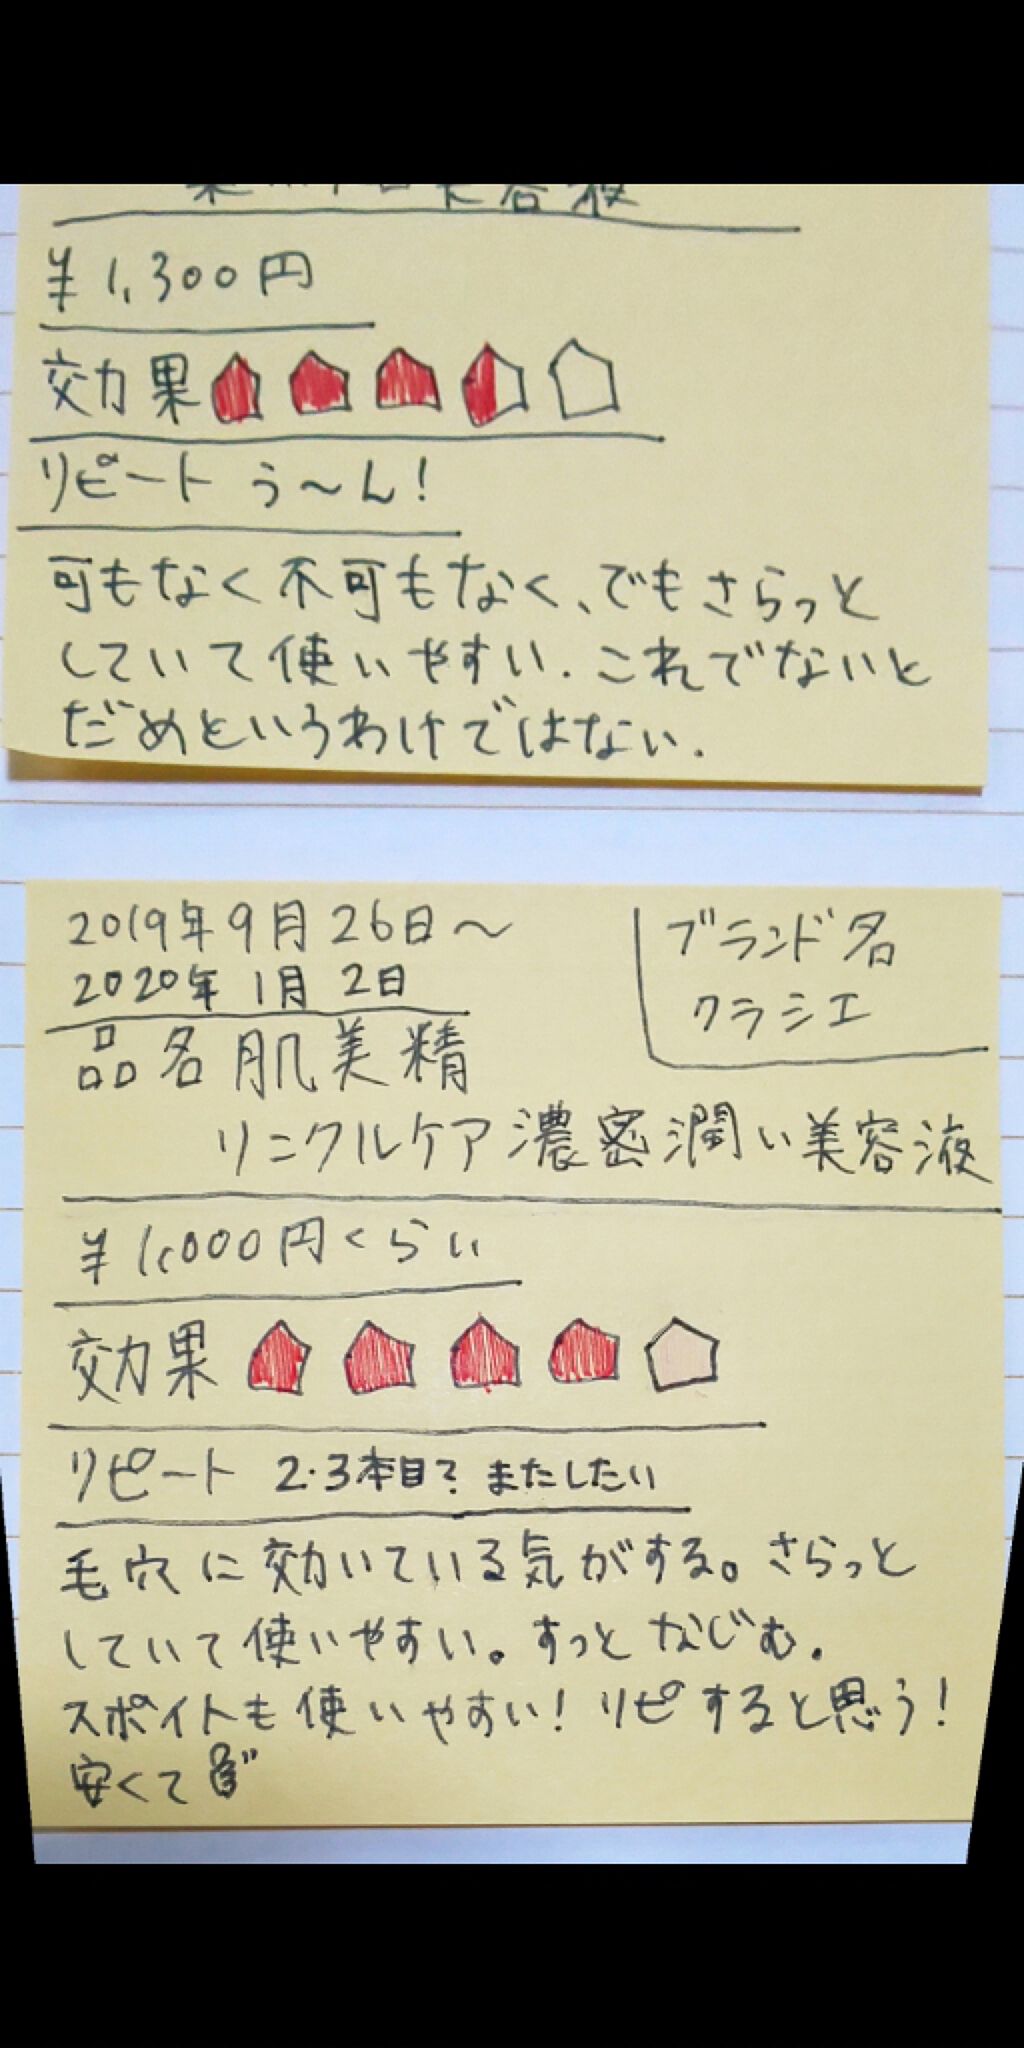 美容液
¥1,300円
効果
リピート う〜ん!
可もなく不可もなく、でもさらっと
していて使いやすい.これでないと
だめというわけではない.
2019年9月26日〜
2020年1月2日
ブランド名
クラシエ
品名 肌美精
リンクルケア濃密潤い美容液
¥1,000円くらい
効果
リピート 2.3本目?またしたい
毛穴に効いている気がする。さらっと
していて使いやすい。すっとなじむ.
スポイトも使いやすい!リピすると思う!
安くて